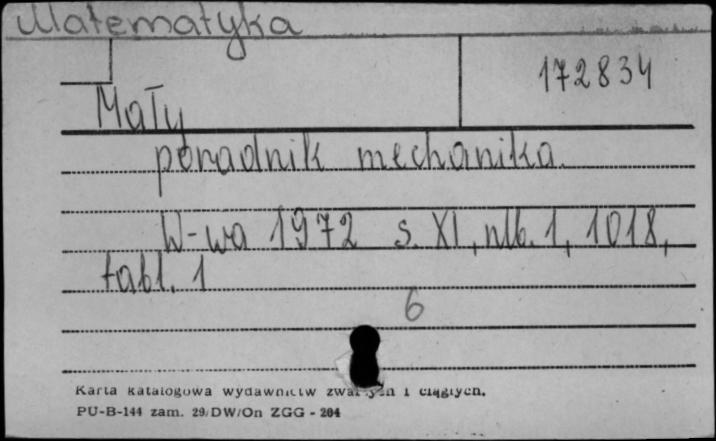 Matematyka
172834
Mały
poradnik mechanika.
W-wa 1972 s. XI, nlb. 1, 1018,
tabl. 1
6
Karta katalogowa wydawnictw zwartych i ciągłych.
PU-B-144 zam. 29/DW/On ZGG - 204